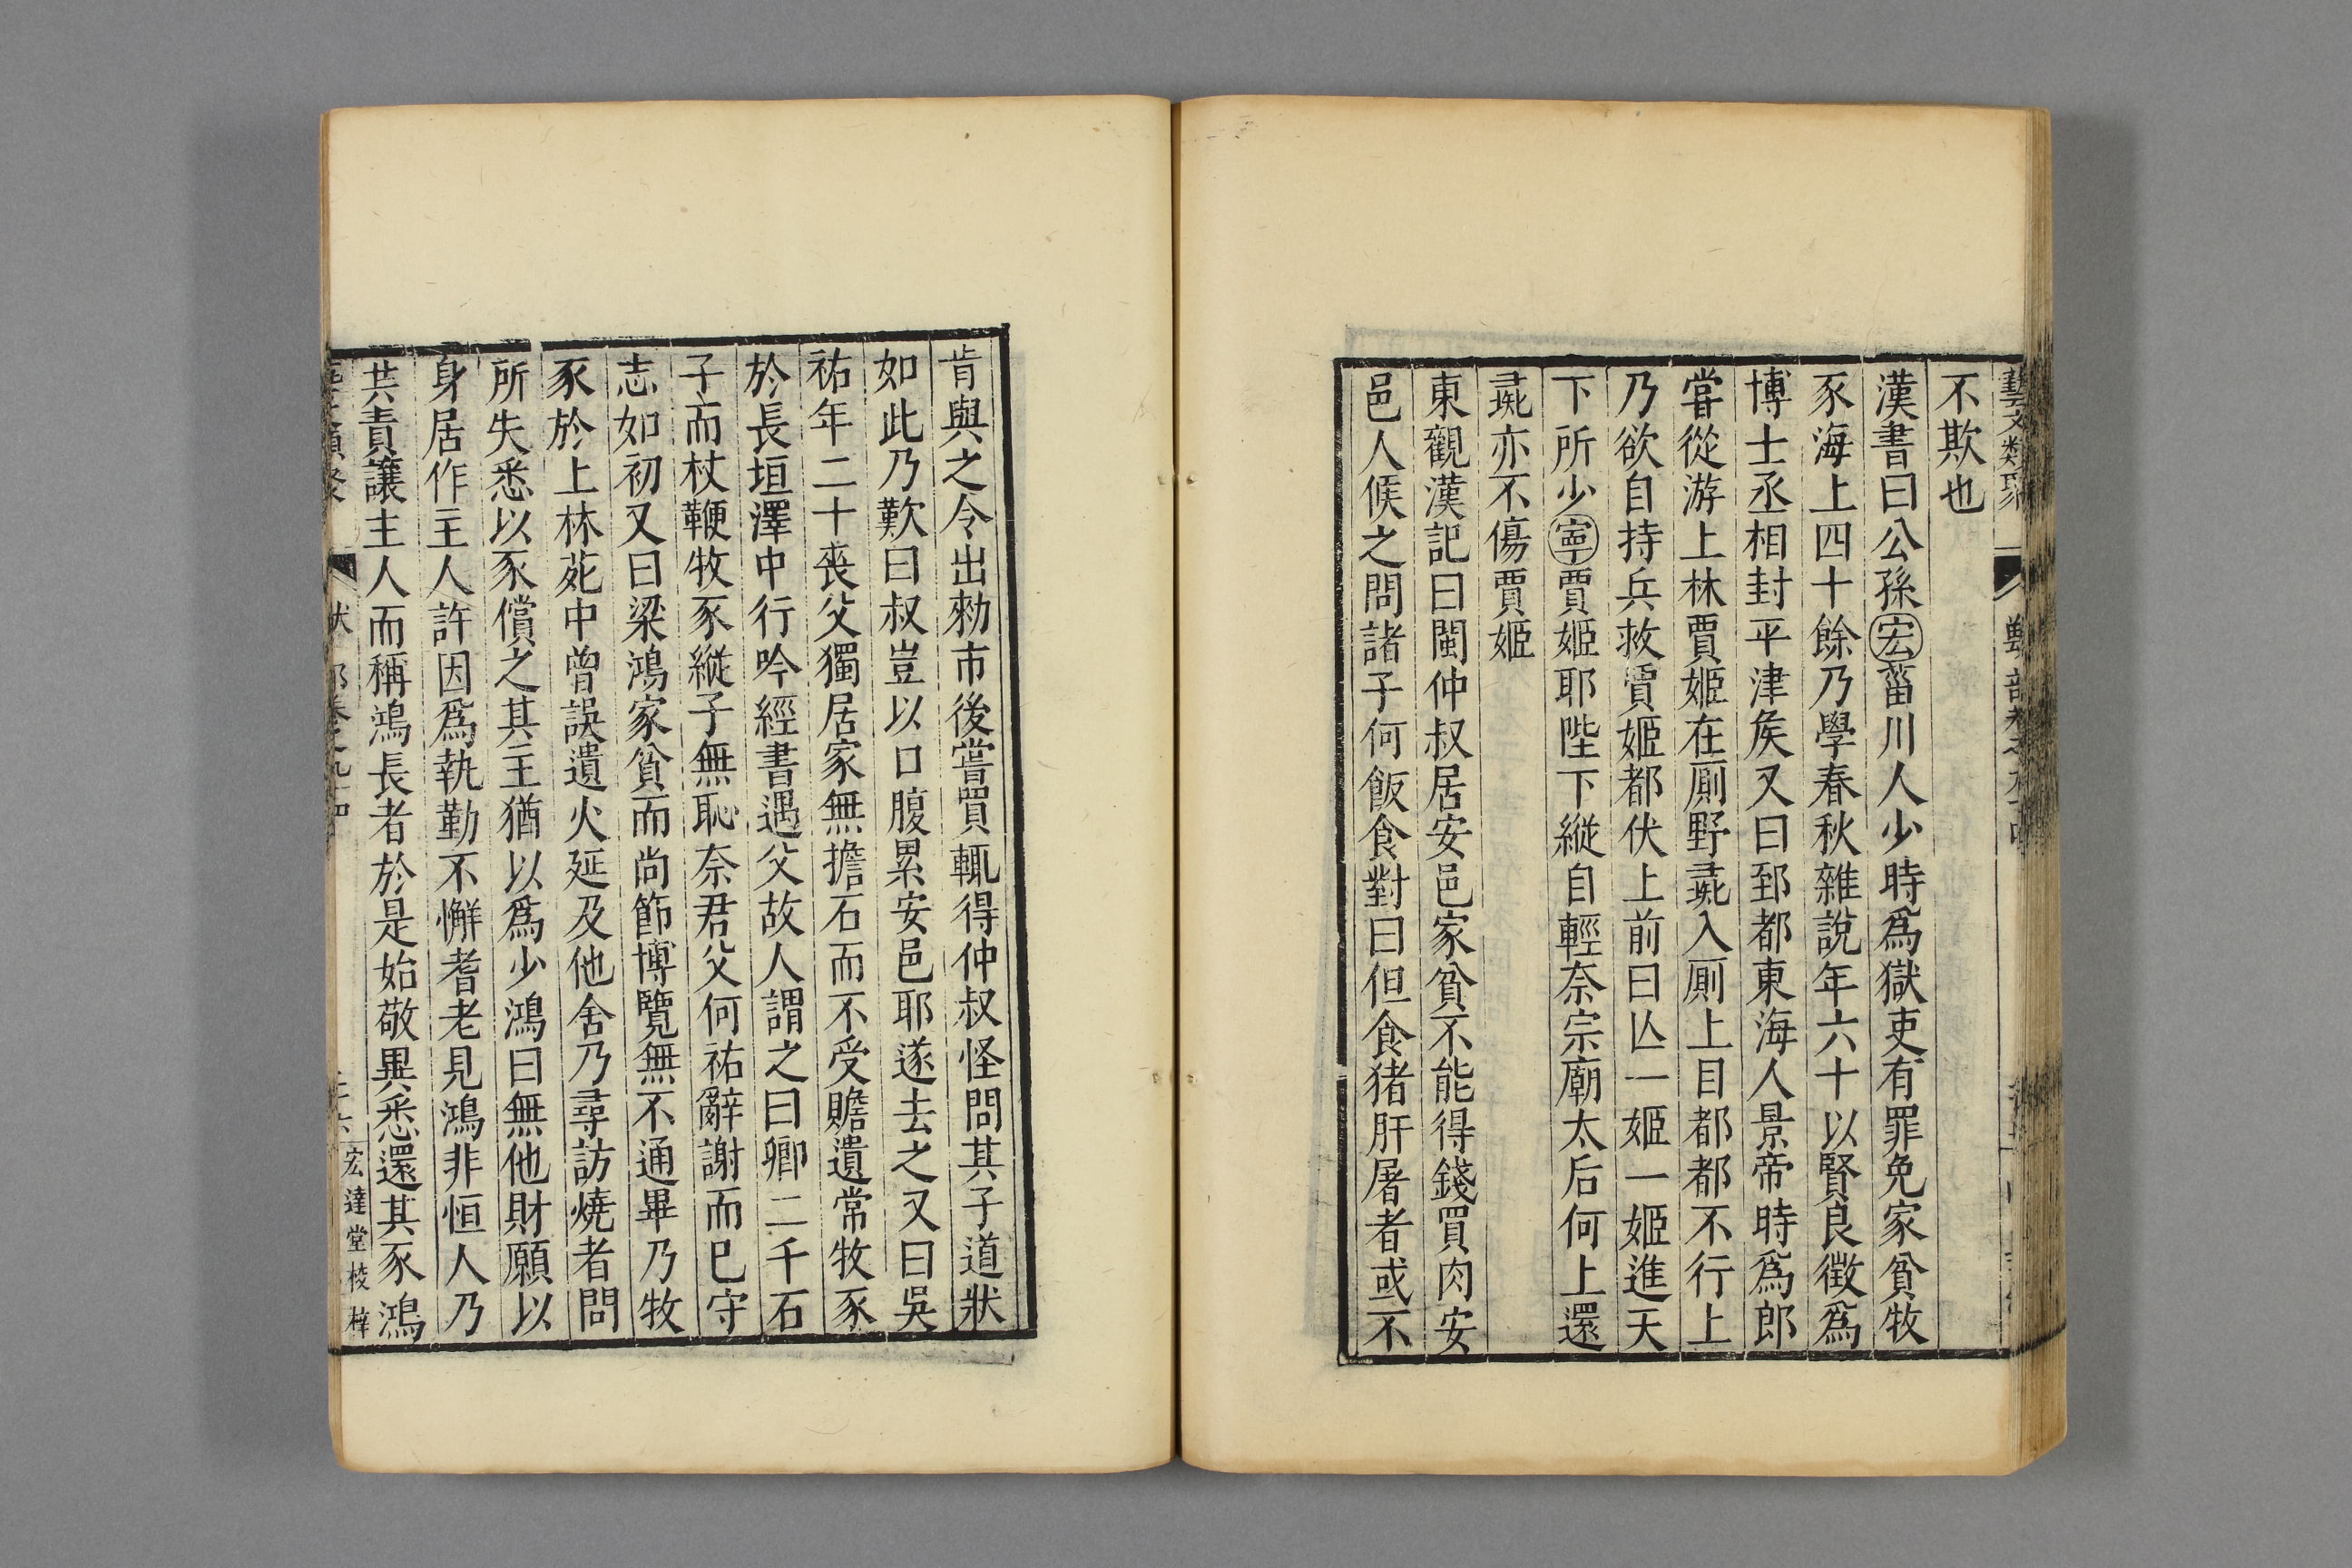 藝文類聚 獸部卷之九十四
不欺也
漢書曰公孫宏菑川人少時爲獄吏有罪免家貧牧
豕海上四十餘乃學春秋雜說年六十以賢良徵爲
博士丞相封平津矦又曰郅都東海人景帝時爲郎
嘗從游上林賈姬在厠野彘入厠上目都都不行上
乃欲自持兵救賈姬都伏上前曰亾一姬一姬進天
下所少寧賈姬耶陛下縱自輕奈宗廟太后何上還
彘亦不傷賈姬
東觀漢記曰閩仲叔居安邑家貧不能得錢買肉安
邑人候之問諸子何飯食對曰但食猪肝屠者或不
肯與之令出勑市後嘗買輒得仲叔怪問其子道狀
如此乃歎曰叔豈以口腹累安邑耶遂去之又曰吳
祐年二十喪父獨居家無擔石而不受贍遺常牧豕
於長垣澤中行吟經書遇父故人謂之曰卿二千石
子而杖鞭牧豕縱子無恥奈君父何祐辭謝而已守
志如初又曰梁鴻家貧而尚節博覽無不通畢乃牧
豕於上林苑中曾誤遺火延及他舍乃尋訪燒者問
所失悉以豕償之其主猶以爲少鴻曰無他財願以
身居作主人許因爲執勤不懈耆老見鴻非恒人乃
共責讓主人而稱鴻長者於是始敬異悉還其豕鴻
卷之九十四 宏達堂校梓